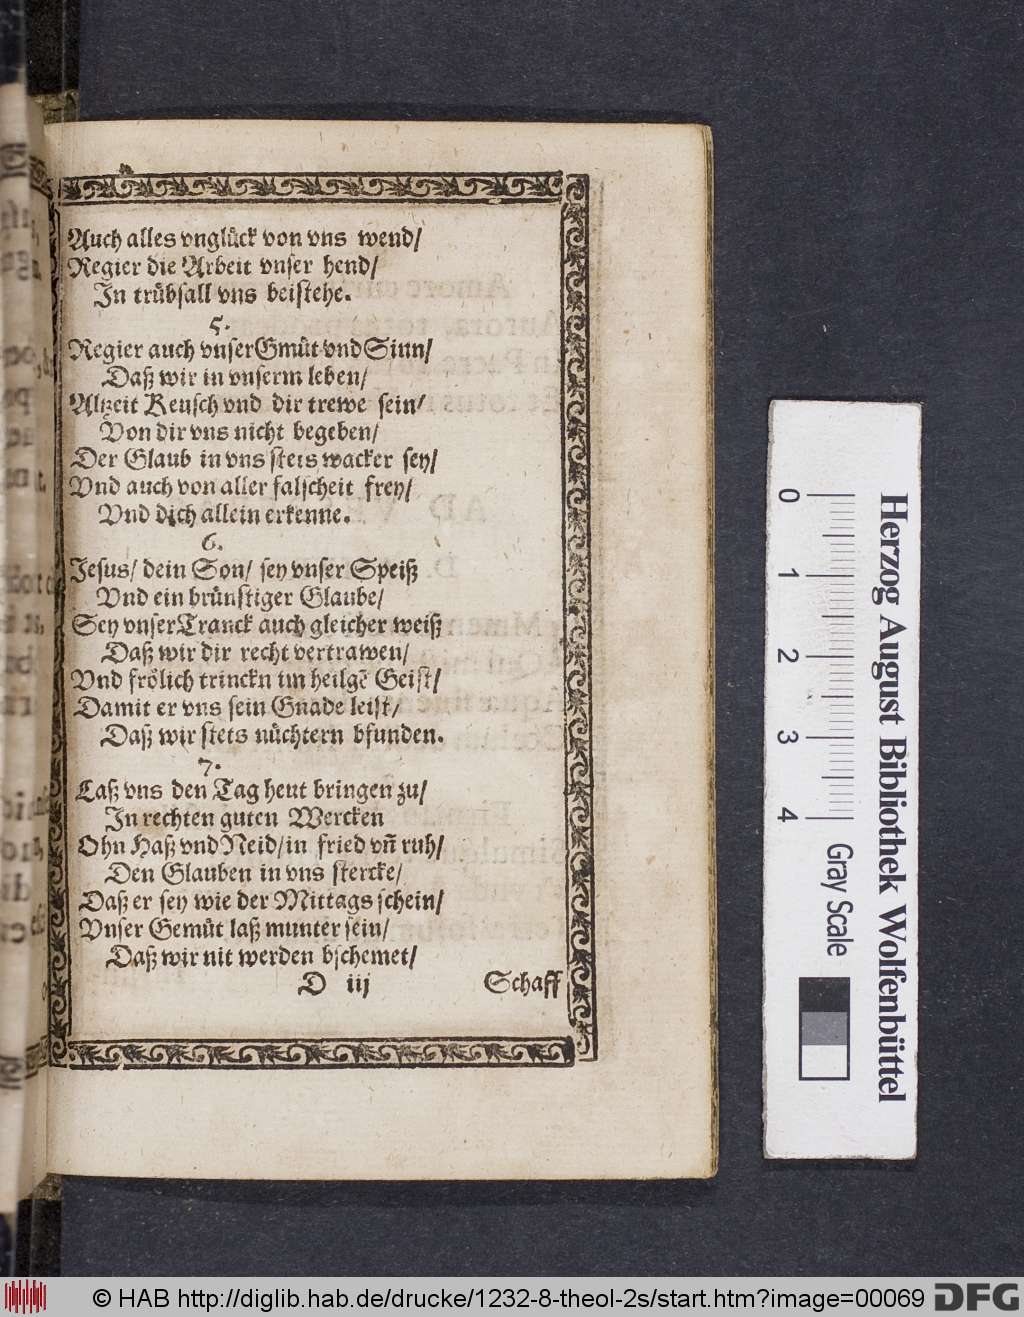 Auch alles vnglück von vns wend/
Regier die Arbeit vnser hend/
In trübsall vns beistehe.
5.
Regier auch vnser Gmüt vnd Sinn/
Daß wir in vnserm leben/
Altzeit Keusch vnd dir trewe sein/
Von dir vns nicht begeben/
Der Glaub in vns stets wacker sey/
Vnd auch von aller falscheit frey/
Vnd dich allein erkenne.
6.
Jesus/ dein Son/ sey vnser Speiß
Vnd ein brünstiger Glaube/
Sey vnser Tranck auch gleicher weiß
Daß wir dir recht vertrawen/
Vnd frölich trinckn im heilgẽ Geist/
Damit er vns sein Gnade leist/
Daß wir stets nüchtern bfunden.
7.
Laß vns den Tag heut bringen zu/
In rechten guten Wercken
Ohn Haß vnd Neid/ in fried vñ ruh/
Den Glauben in vns stercke/
Daß er sey wie der Mittags schein/
Vnser Gemüt laß munter sein/
Daß wir nit werden bschemet/
D iij Schaff
0 1 2 3 4
Gray Scale
Herzog August Bibliothek Wolfenbüttel
© HAB http://diglib.hab.de/drucke/1232-8-theol-2s/start.htm?image=00069 DFG